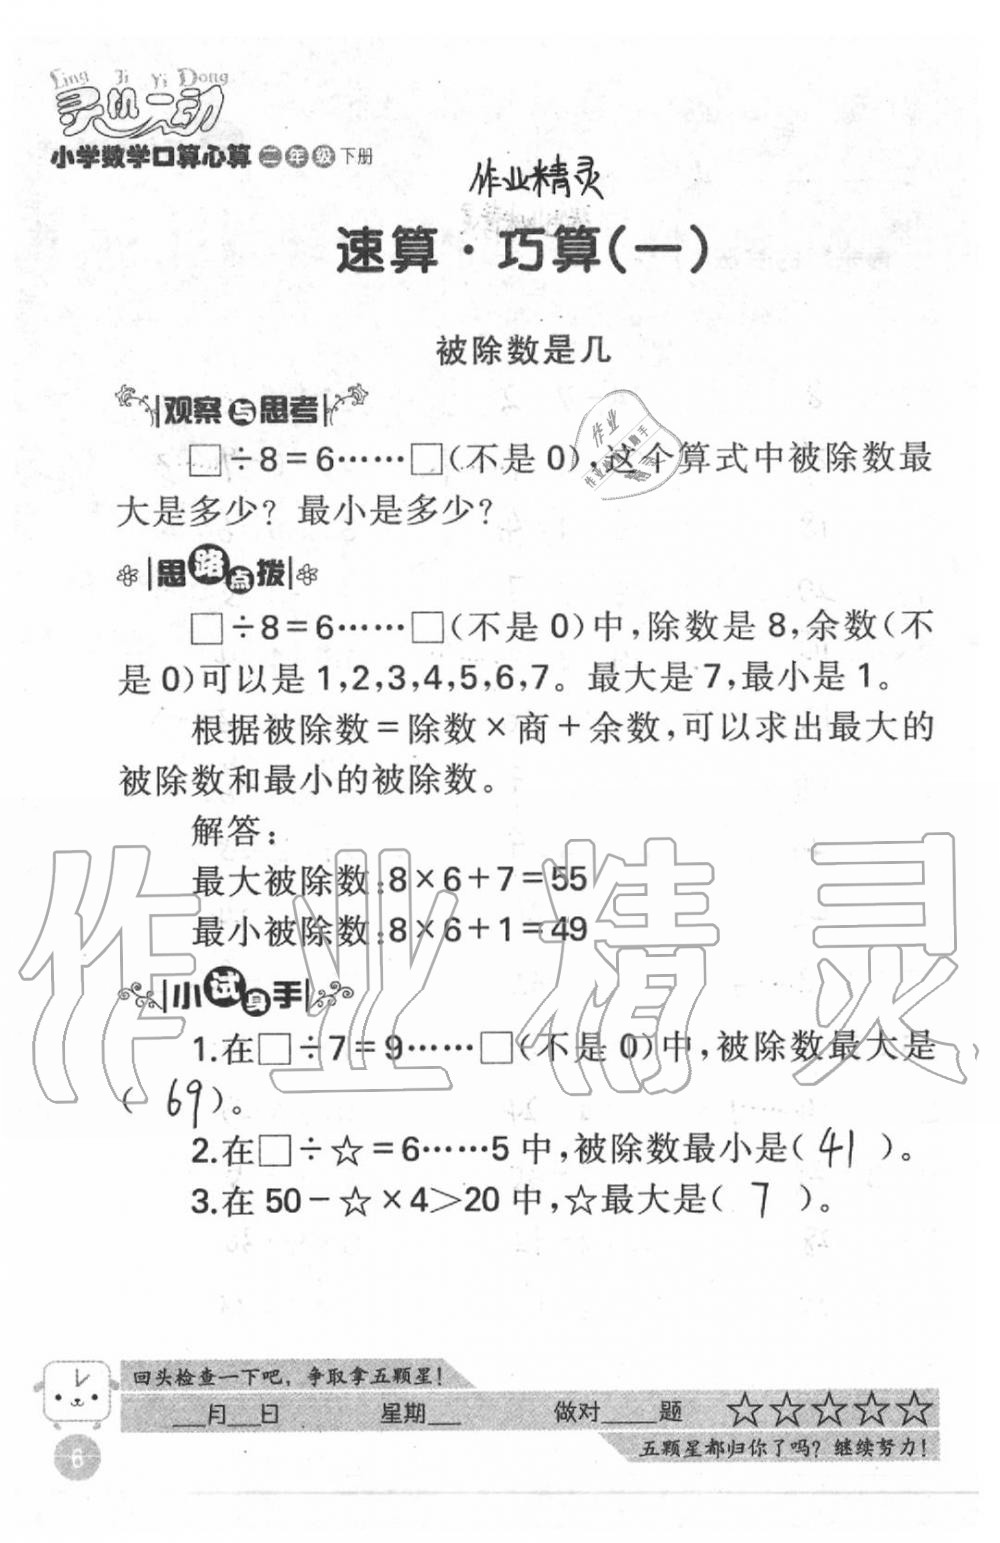 Ling Ji Yi Dong
灵机一动
小学数学口算心算 二年级 下册
作业精灵
速算·巧算(一)
被除数是几
观察与思考
□÷8=6……□(不是0),这个算式中被除数最
大是多少?最小是多少?
思路点拨
□÷8=6……□(不是0)中,除数是8,余数(不
是0)可以是1,2,3,4,5,6,7。最大是7,最小是1。
根据被除数=除数×商+余数,可以求出最大的
被除数和最小的被除数。
解答:
最大被除数:8×6+7=55
最小被除数:8×6+1=49
作业精灵
小试身手
1.在□÷7=9……□(不是0)中,被除数最大是
( 69 )。
2.在□÷☆=6……5中,被除数最小是( 41 )。
3.在50-☆×4>20中,☆最大是( 7 )。
回头检查一下吧,争取拿五颗星!
___月___日 星期___ 做对_____题 ☆☆☆☆☆
五颗星都归你了吗?继续努力!
6